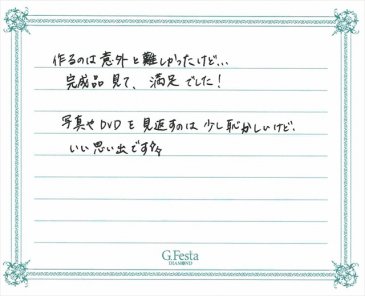 作るのは意外と難しかったけど...
完成品見て、満足でした!
写真やDVDを見返すのは少し恥かしいけど、
いい思い出です
G.Festa
DIAMOND